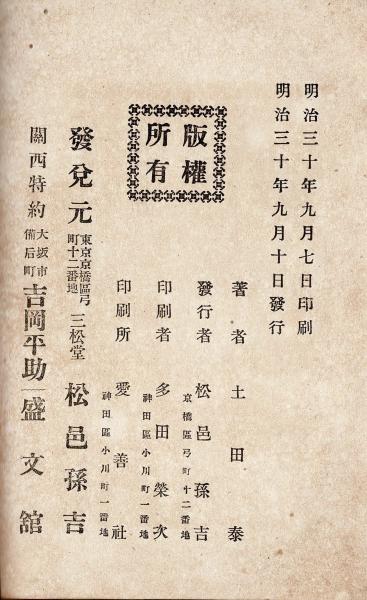 明治三十年九月七日印刷
明治三十年九月十日發行
版權
所有
著者 土田泰
發行者 松邑孫吉
京橋區弓町十二番地
印刷者 多田榮次
神田區小川町一番地
印刷所 愛善社
神田區小川町一番地
發兌元 東京京橋區弓町十二番地 三松堂 松邑孫吉
關西特約 大坂市備后町 吉岡平助 盛文館